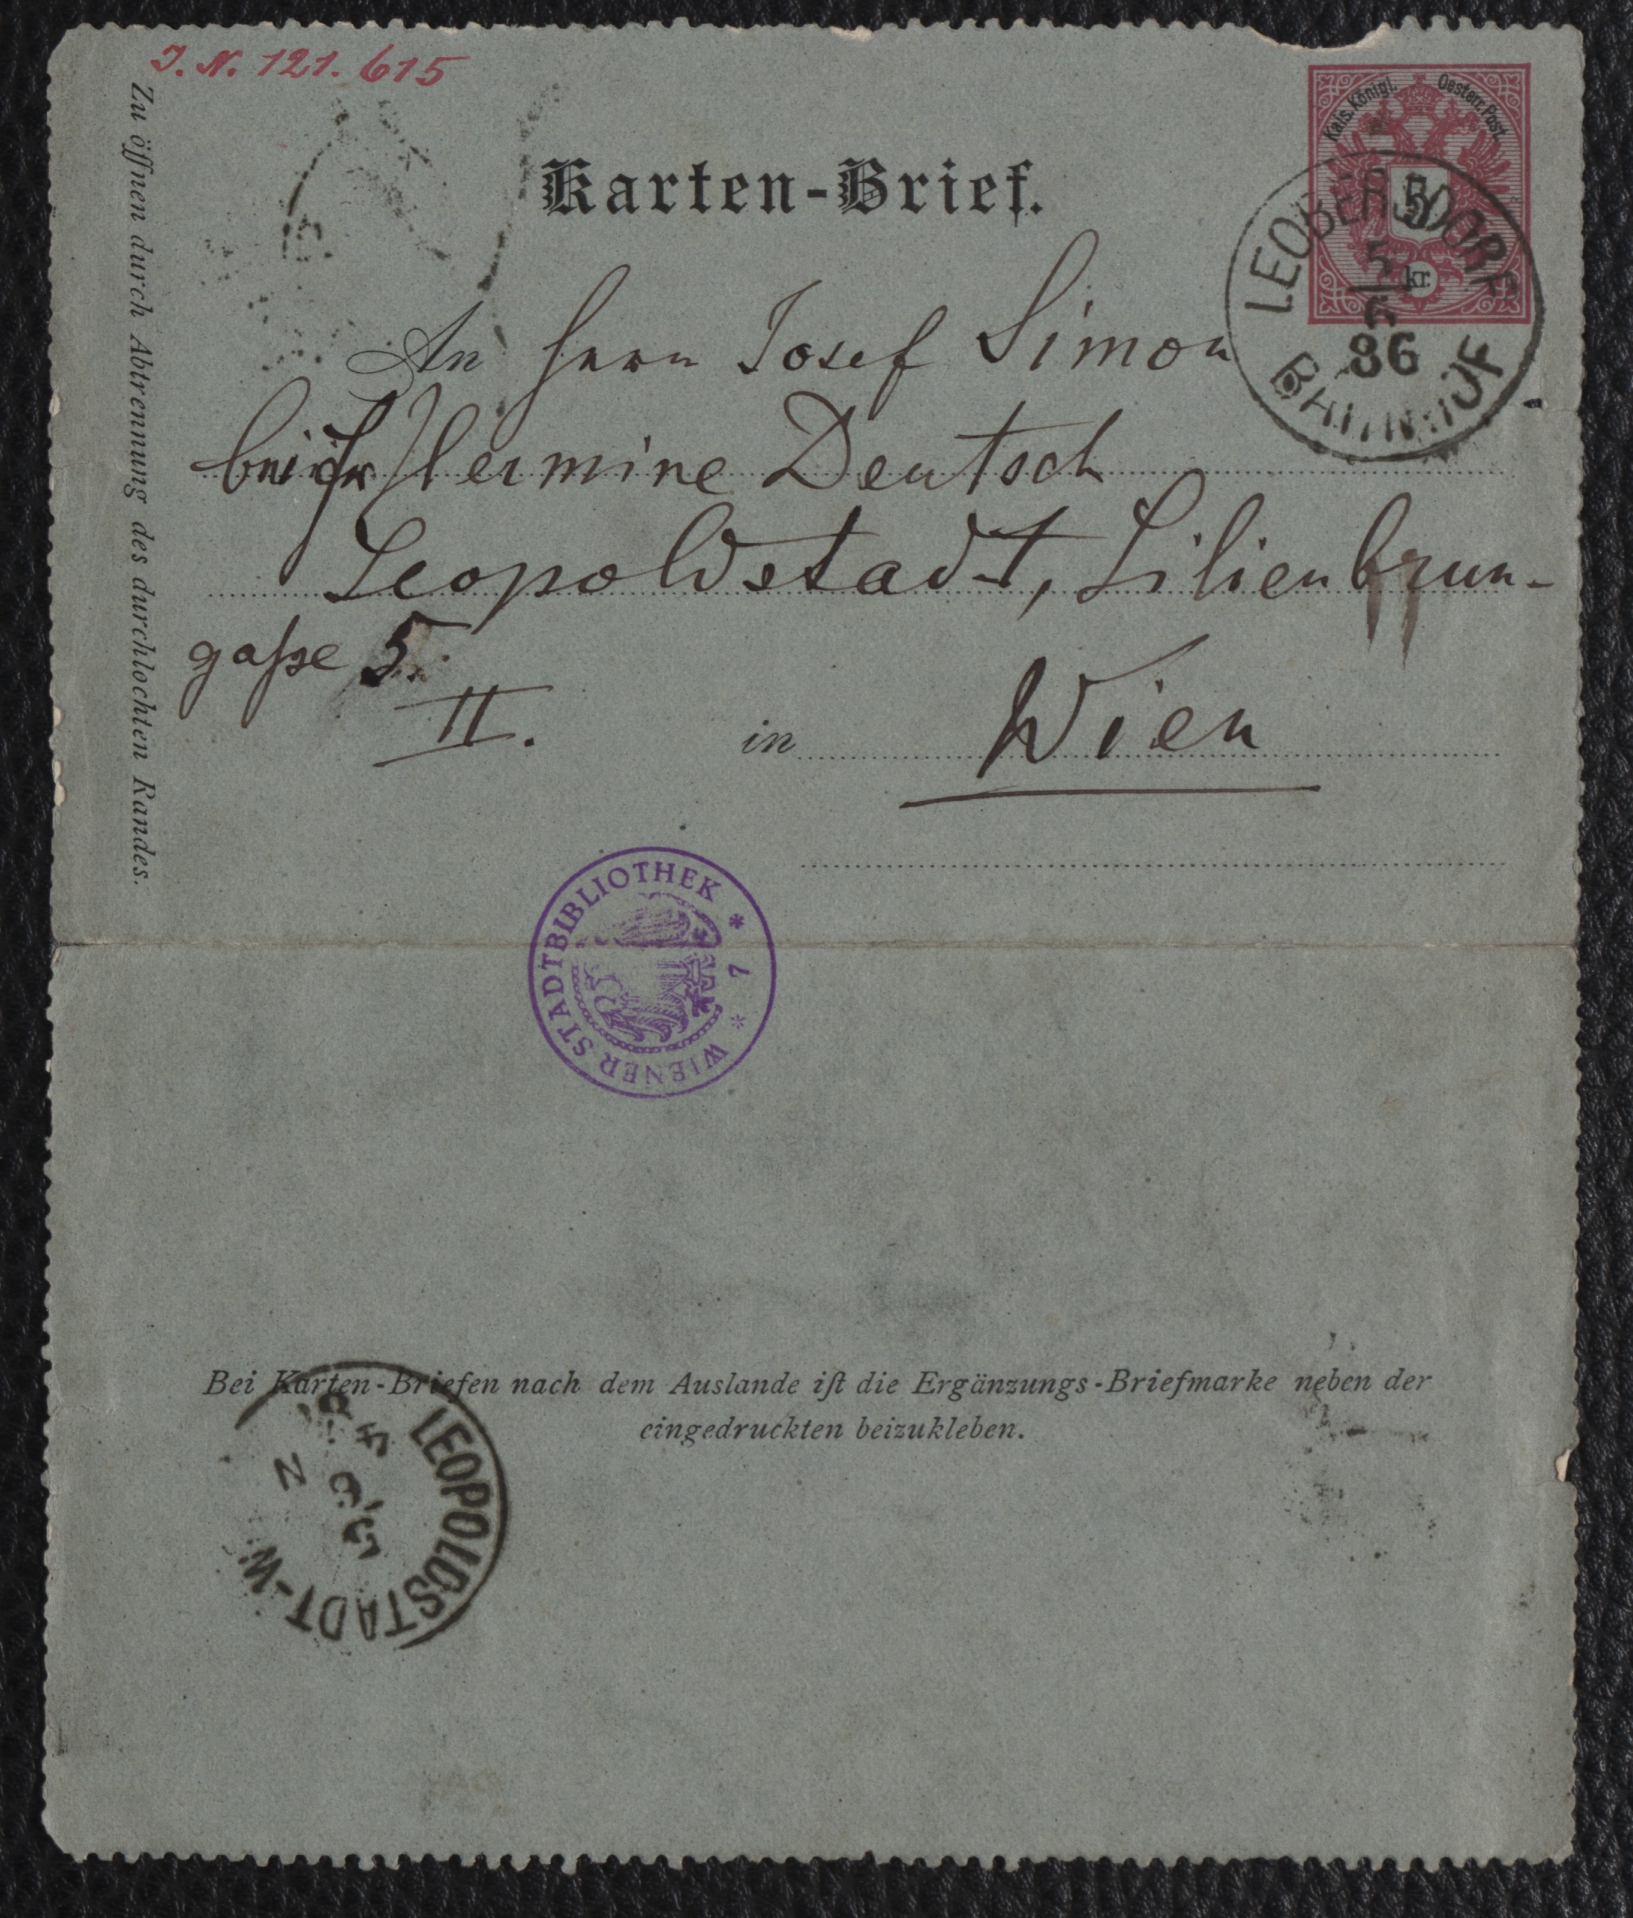 J. N. 121.615
Zu öffnen durch Abtrennung des durchlochten Randes.
Karten-Brief.
Kais. Königl. Oesterr. Post.
5
kr.
LEOBERSDORF
5
86
BAHNHOF
An Herrn Josef Simon
bei Hermine Deutsch
Leopoldstadt, Lilienbrun-
gaſse 5.
II.
in Wien
WIENER STADTBIBLIOTHEK * 7 *
Bei Karten-Briefen nach dem Auslande iſt die Ergänzungs-Briefmarke neben der
eingedruckten beizukleben.
LEOPOLDSTADT-W